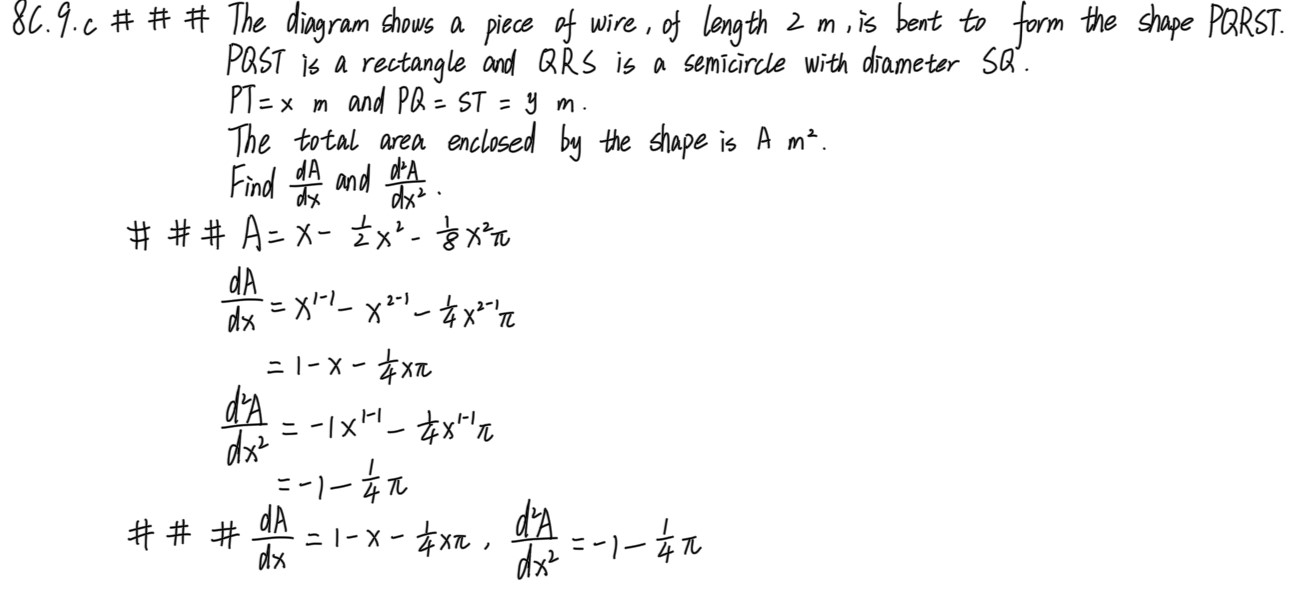 8C.9.c # # # The diagram shows a piece of wire, of length 2 m, is bent to form the shape PQRST.
PQST is a rectangle and QRS is a semicircle with diameter SQ.
PT = x m and PQ = ST = y m.
The total area enclosed by the shape is A m².
Find dA/dx and d²A/dx².
# # # A = x - 1/2 x² - 1/8 x²π
dA/dx = x¹⁻¹ - x²⁻¹ - 1/4 x²⁻¹π
= 1 - x - 1/4 xπ
d²A/dx² = -1x¹⁻¹ - 1/4 x¹⁻¹π
= -1 - 1/4 π
# # # dA/dx = 1 - x - 1/4 xπ, d²A/dx² = -1 - 1/4 π